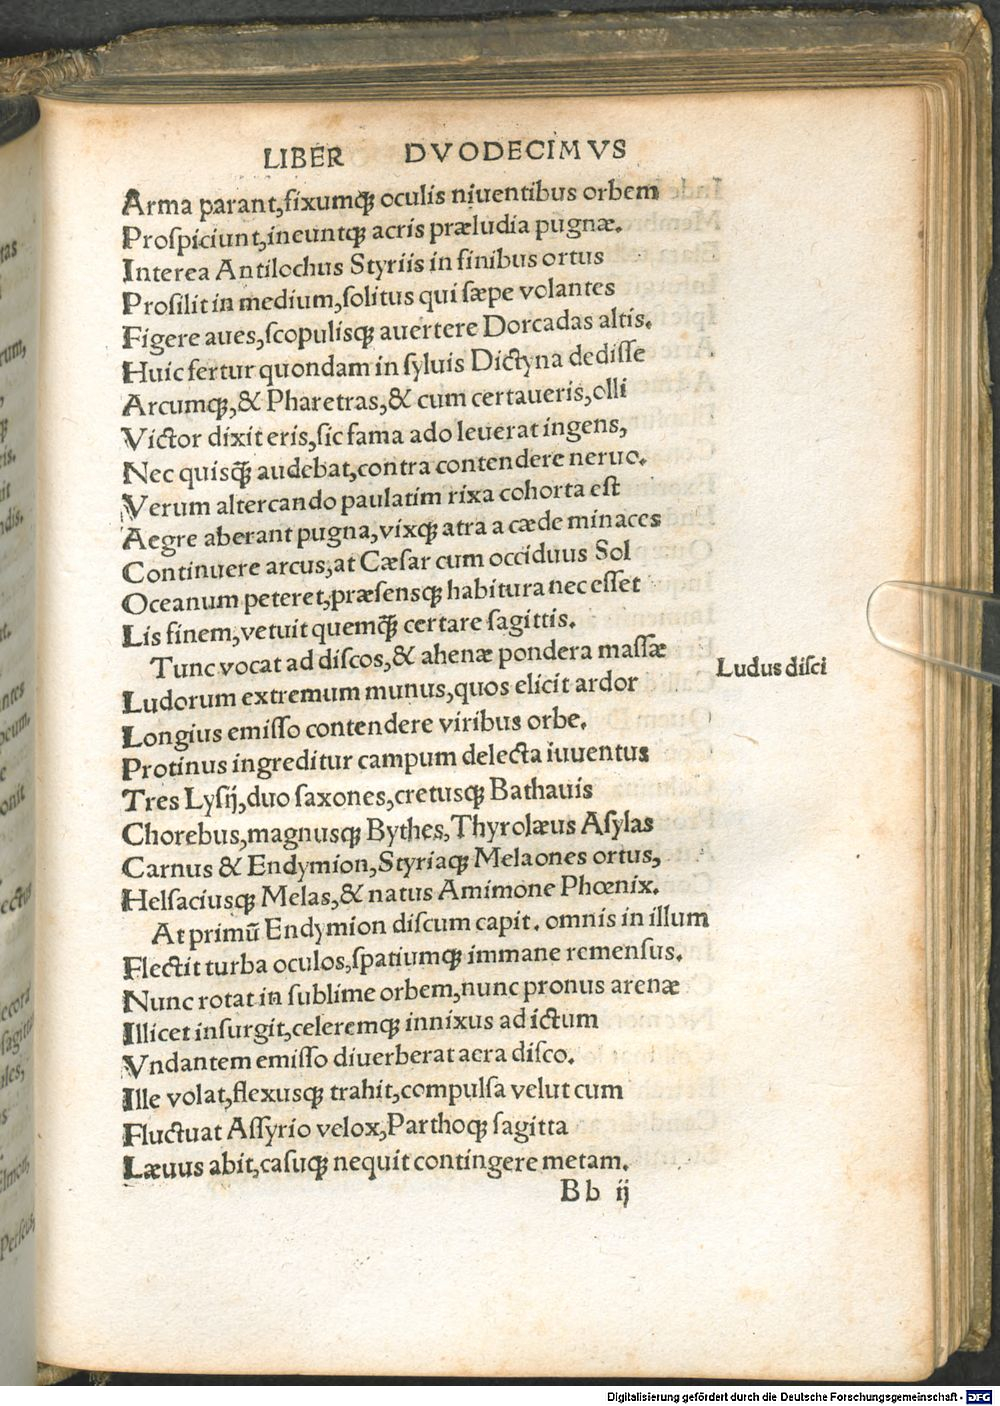 LIBER DVODECIMVS
Arma parant,fixumq̢ oculis niuentibus orbem
Proſpiciunt,ineuntq̢ acris præludia pugnæ.
Interea Antilochus Styriis in finibus ortus
Profilit in medium,ſolitus qui ſæpe volantes
Figere aues,ſcopulisq̢ auertere Dorcadas altis.
Huic fertur quondam in ſyluis Dictyna dediſſe
Arcumq̢,& Pharetras,& cum certaueris,olli
Victor dixit eris,ſic fama ado leuerat ingens,
Nec quisq̃ audebat,contra contendere neruo.
Verum altercando paulatim rixa cohorta eſt
Aegre aberant pugna,vixq̢ atra a cæde minaces
Continuere arcus,at Cæſar cum occiduus Sol
Oceanum peteret,præſensq̢ habitura nec eſſet
Lis finem,vetuit quemq̃ certare ſagittis.
Tunc vocat ad diſcos,& ahenæ pondera maſſæ
Ludus diſci
Ludorum extremum munus,quos elicit ardor
Longius emiſſo contendere viribus orbe.
Protinus ingreditur campum delecta iuuentus
Tres Lyſij,duo ſaxones,cretusq̢ Bathauis
Chorebus,magnusq̢ Bythes,Thyrolæus Aſylas
Carnus & Endymion,Styriaq̢ Melaones ortus,
Helſaciusq̢ Melas,& natus Amimone Phœnix.
At primū Endymion diſcum capit. omnis in illum
Flectit turba oculos,ſpatiumq̢ immane remenſus.
Nunc rotat in ſublime orbem,nunc pronus arenæ
Illicet inſurgit,celeremq̢ innixus ad ictum
Vndantem emiſſo diuerberat aera diſco.
Ille volat,flexusq̢ trahit,compulſa velut cum
Fluctuat Aſſyrio velox,Parthoq̢ ſagitta
Læuus abit,caſuq̢ nequit contingere metam.
Bb ij
Digitalisierung gefördert durch die Deutsche Forschungsgemeinschaft - DFG